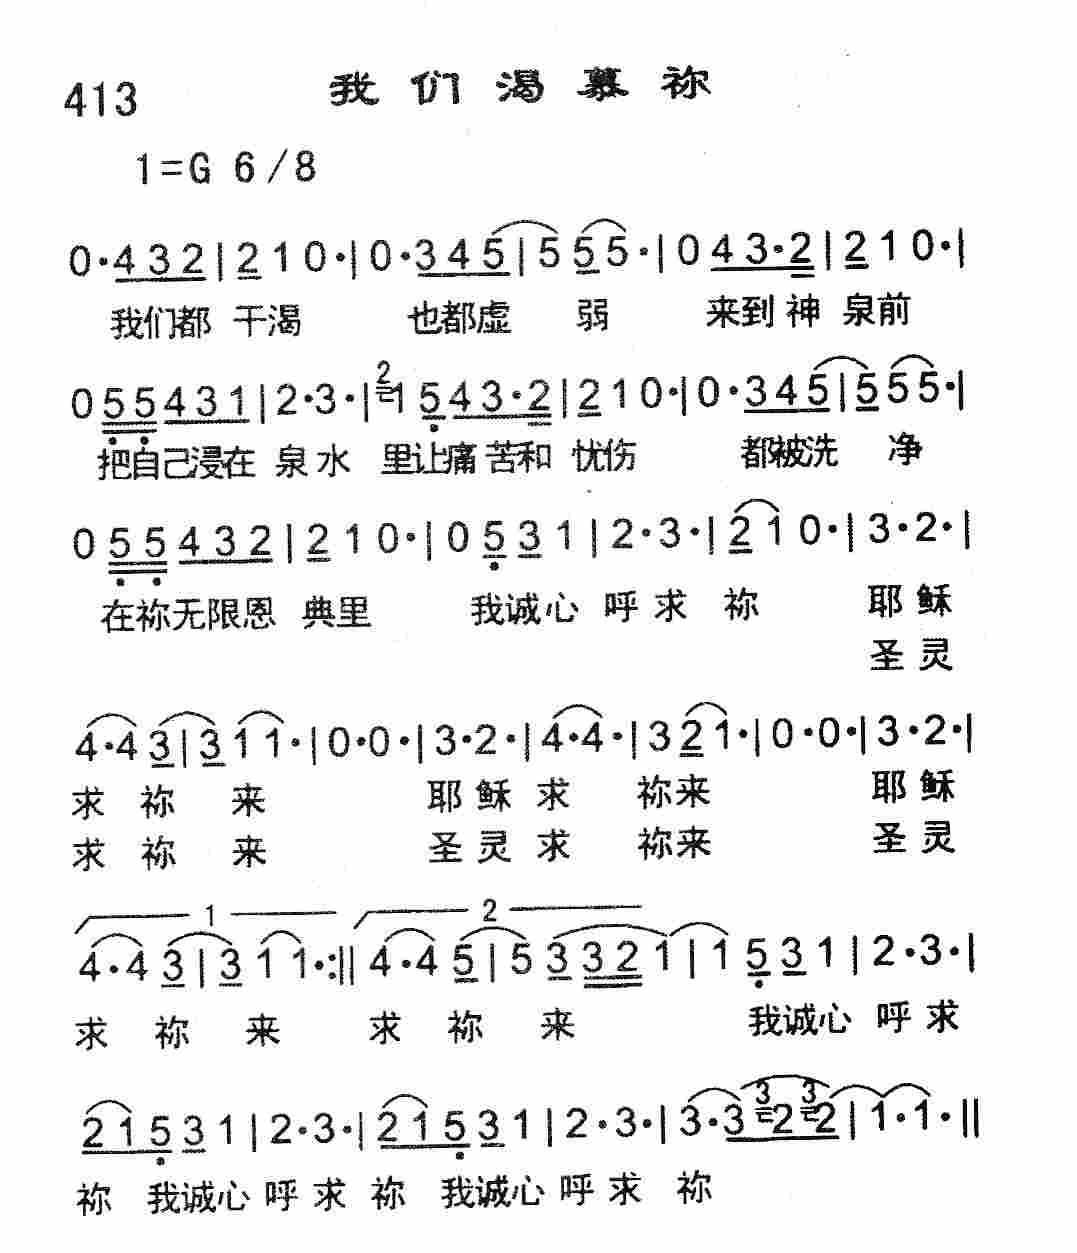 413 我们渴慕祢
1=G 6/8
0·432|210·|0·345|555·|043·2|210·|
我们都 干渴 也都虚 弱 来到神 泉前
055431|2·3·|2 1543·2|210·|0·345|555·|
把自己浸在 泉水 里让痛苦和 忧伤 都被洗 净
055432|210·|0531|2·3·|210·|3·2·|
在祢无限恩 典里 我诚心 呼求 祢 耶稣
圣灵
4·43|311·|0·0·|3·2·|4·4·|321·|0·0·|3·2·|
求 祢 来 耶稣 求 祢来 耶稣
求 祢 来 圣灵 求 祢来 圣灵
1 2
4·43|311·:||4·45|53321|1531|2·3·|
求 祢 来 求 祢 来 我诚心 呼求
21531|2·3·|21531|2·3·|3·3 3 2 3 2|1·1·||
祢 我诚心 呼求 祢 我诚心 呼求 祢